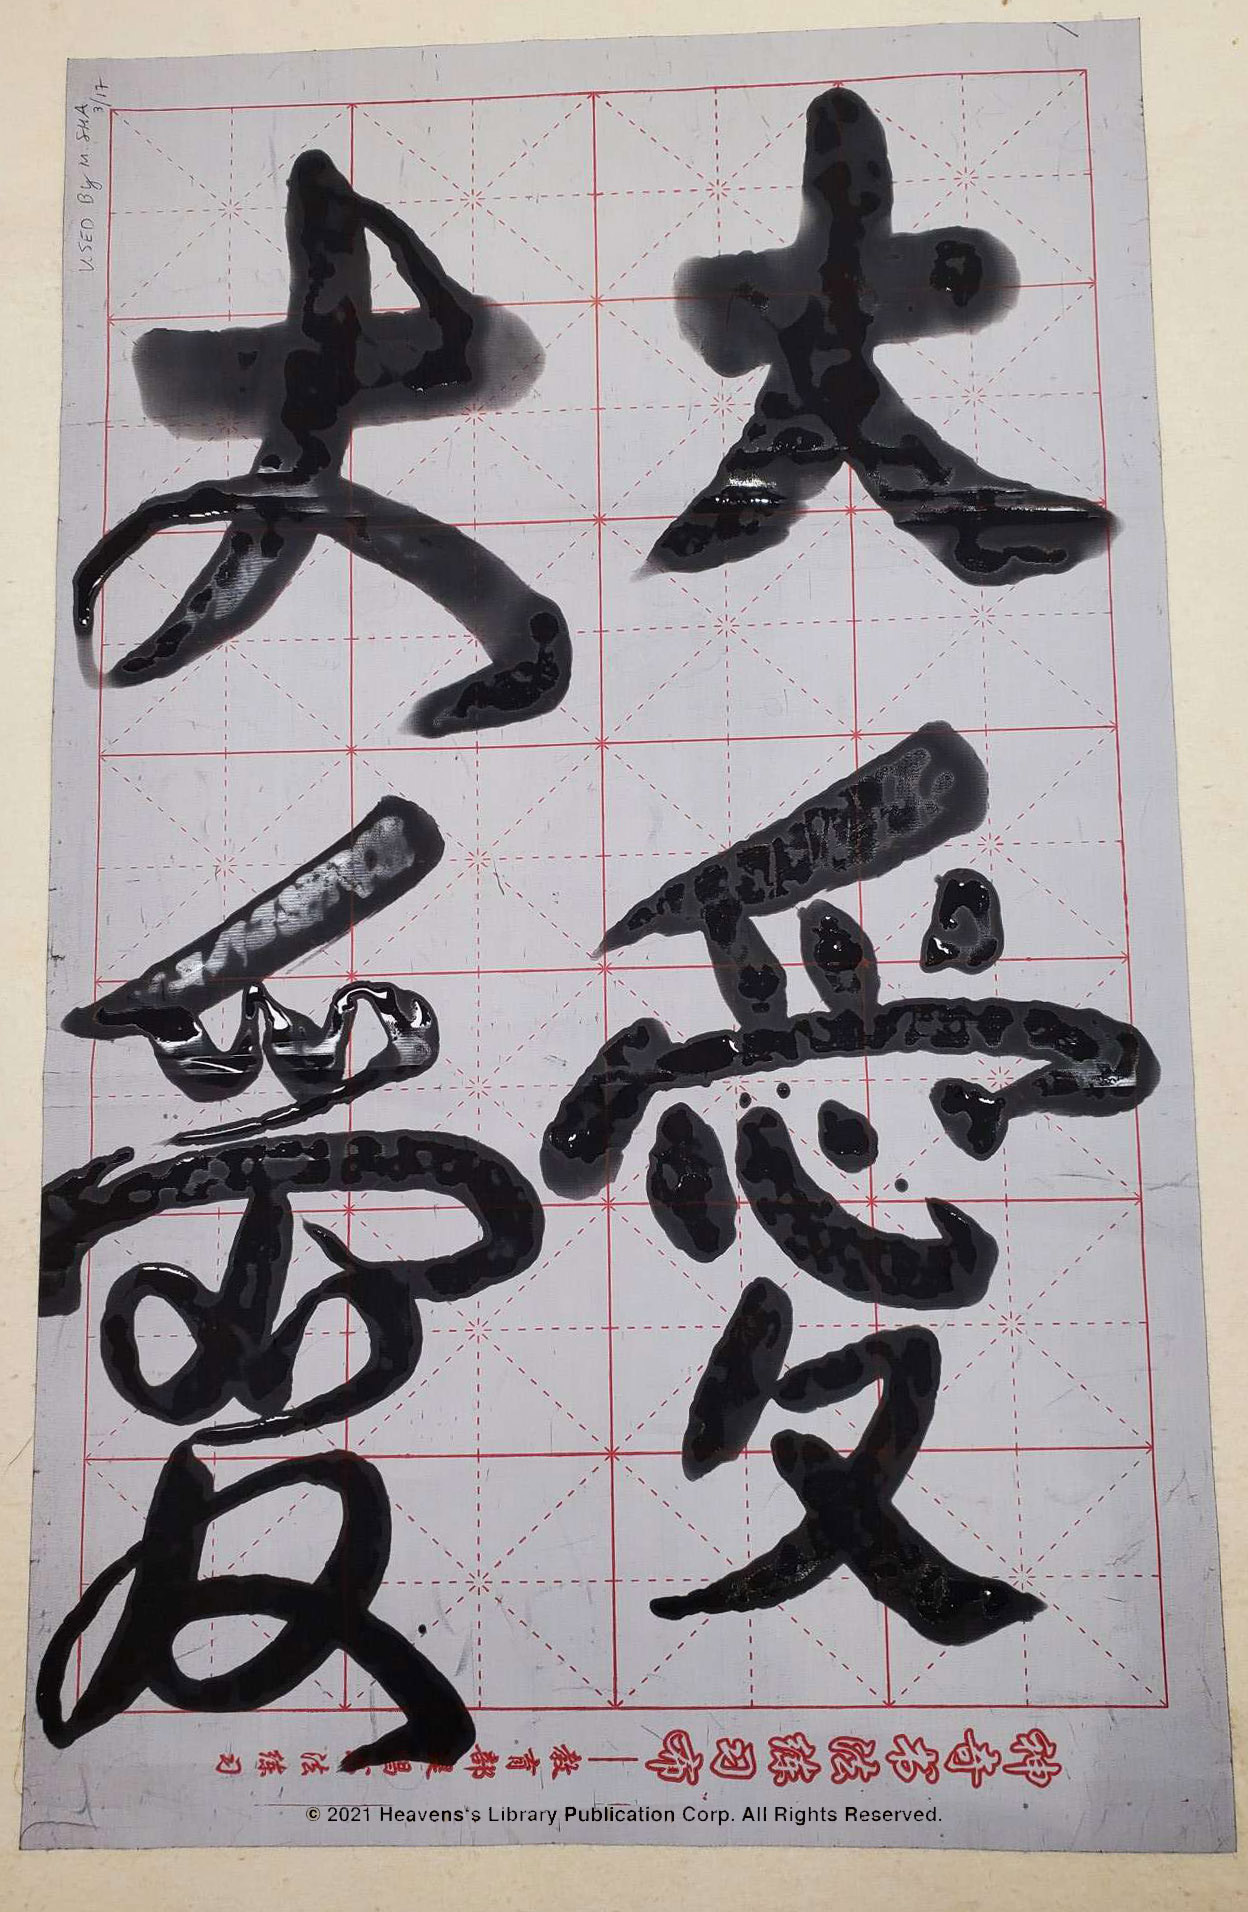 大愛
大愛
USED By M. SHA
3/17
神奇书法练习布—教育部
法練习
© 2021 Heavens‘s Library Publication Corp. All Rights Reserved.